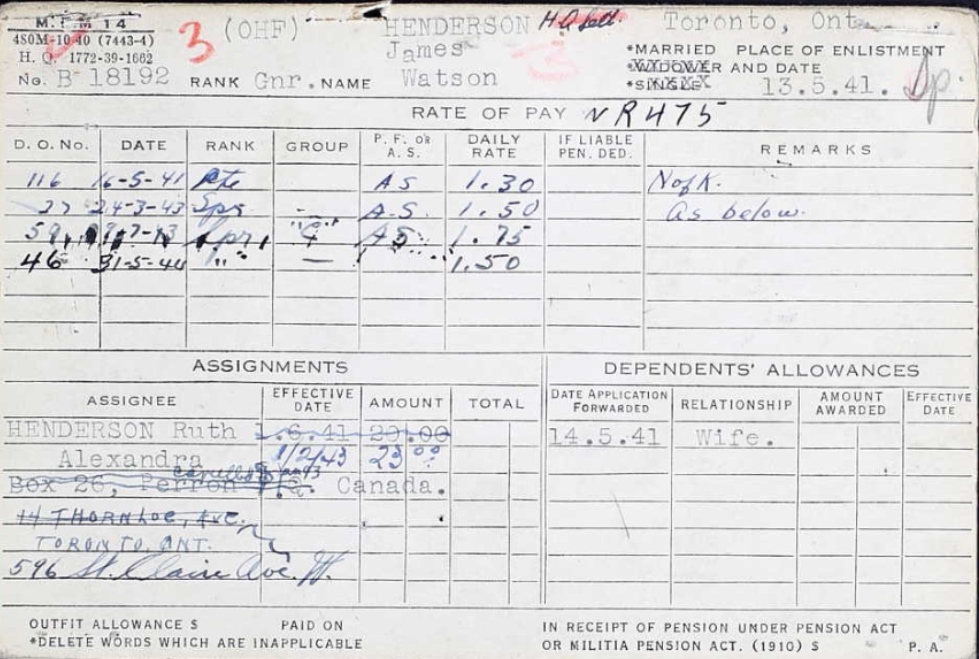 M.F.M 14
3 (OHF) HENDERSON Toronto, Ont
480M-10-40 (7443-4)
H. Q. 1772-39-1662
James
*MARRIED PLACE OF ENLISTMENT
*WIDOWER AND DATE
No. B 18192 RANK Gnr. NAME Watson *SINGLE 13.5.41.
RATE OF PAY NR475
D. O. No. DATE RANK GROUP P. F. OR A. S. DAILY RATE IF LIABLE PEN. DED. REMARKS
116 16-5-41 Pte AS 1.30 NofK.
27 24-3-43 Spr A.S. 1.50 As below.
59 7-43 Spr "C" AS 1.75
46 31-5-44 " — 1.50
ASSIGNMENTS DEPENDENTS' ALLOWANCES
ASSIGNEE EFFECTIVE DATE AMOUNT TOTAL DATE APPLICATION FORWARDED RELATIONSHIP AMOUNT AWARDED EFFECTIVE DATE
HENDERSON Ruth 1.6.41 20.00 14.5.41 Wife.
Alexandra 1/2/43 23 00
cancelled
Box 26, Perron P.Q. Canada.
14 THORNLOE, AVE.
TORONTO, ONT.
596 St. Claire Ave. W.
OUTFIT ALLOWANCE $ PAID ON IN RECEIPT OF PENSION UNDER PENSION ACT
*DELETE WORDS WHICH ARE INAPPLICABLE OR MILITIA PENSION ACT. (1910) $ P. A.